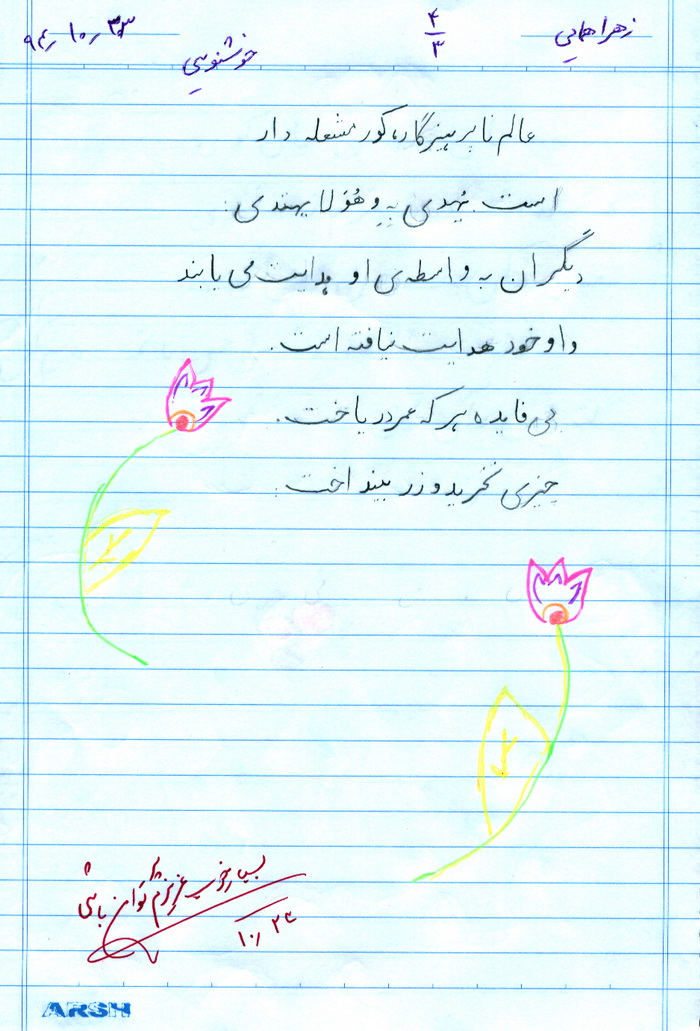 زهرا همایی
۴/۳
خوشنویسی
۹۴٫۱۰٫۲۳
عالم ناپرهیزگار، کور مشعله دار
است. یُهدی بِهِ وَ هُوَ لا یهتدی.
دیگران به واسطه‌ی او هدایت می یابند
و او خود هدایت نیافته است.
بی فایده هر که عمر در باخت.
چیزی نخرید و زر بینداخت.
بسیار خوب عزیزم
باشی
۱۰٫۲۴
ARSH